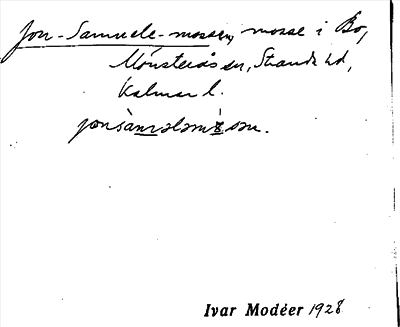 Jon-Samuels-mossen, mosse i Bo,
Mönsterås sn, Stranda hd,
Kalmar l.
Ivar Modéer 1928